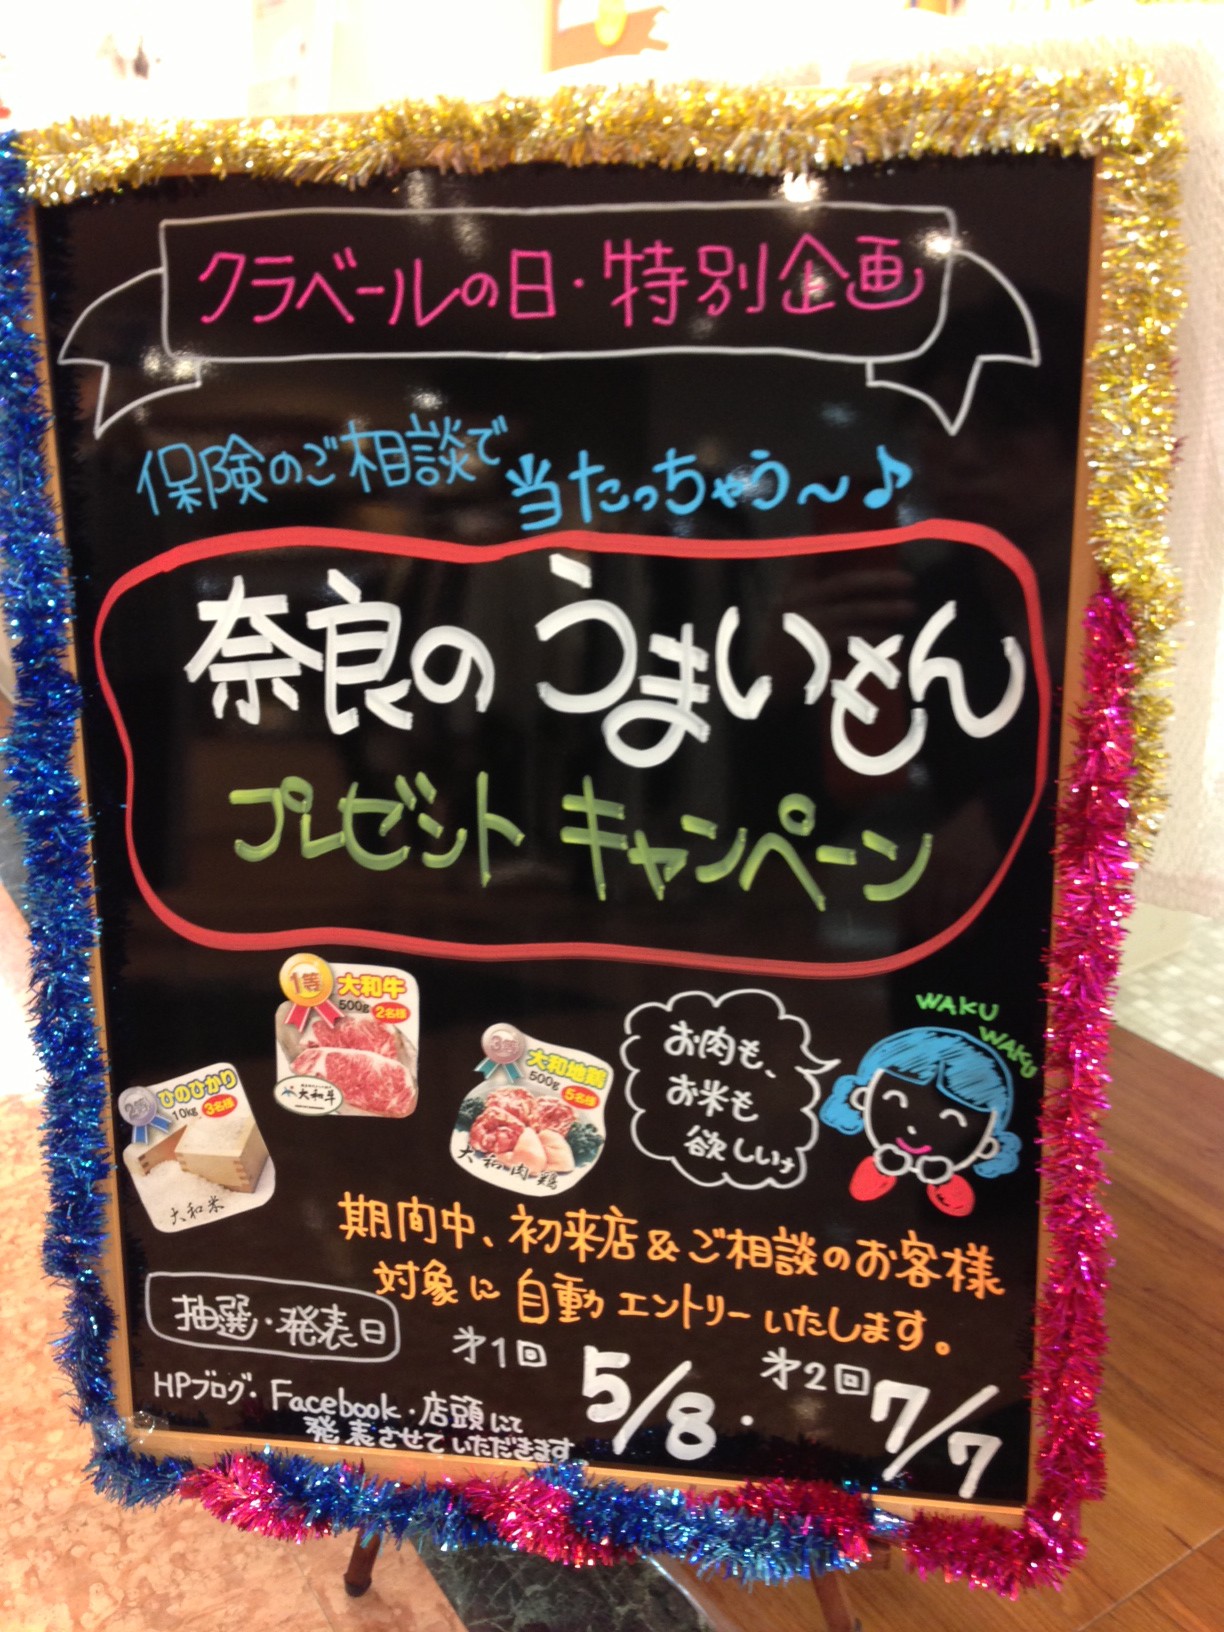 クラベールの日・特別企画
保険のご相談で
当たっちゃう〜♪
奈良のうまいもん
プレゼントキャンペーン
1等
大和牛
500g 2名様
大和牛
2等
ひのひかり
10kg 3名様
大和米
3等
大和地鶏
500g 5名様
大和肉鶏
お肉も、
お米も
欲しいナ
WAKU
WAKU
期間中、初来店&ご相談のお客様
対象に自動エントリーいたします。
抽選・発表日
才1回 5/8・才2回 7/7
HPブログ・Facebook・店頭にて
発表させていただきます